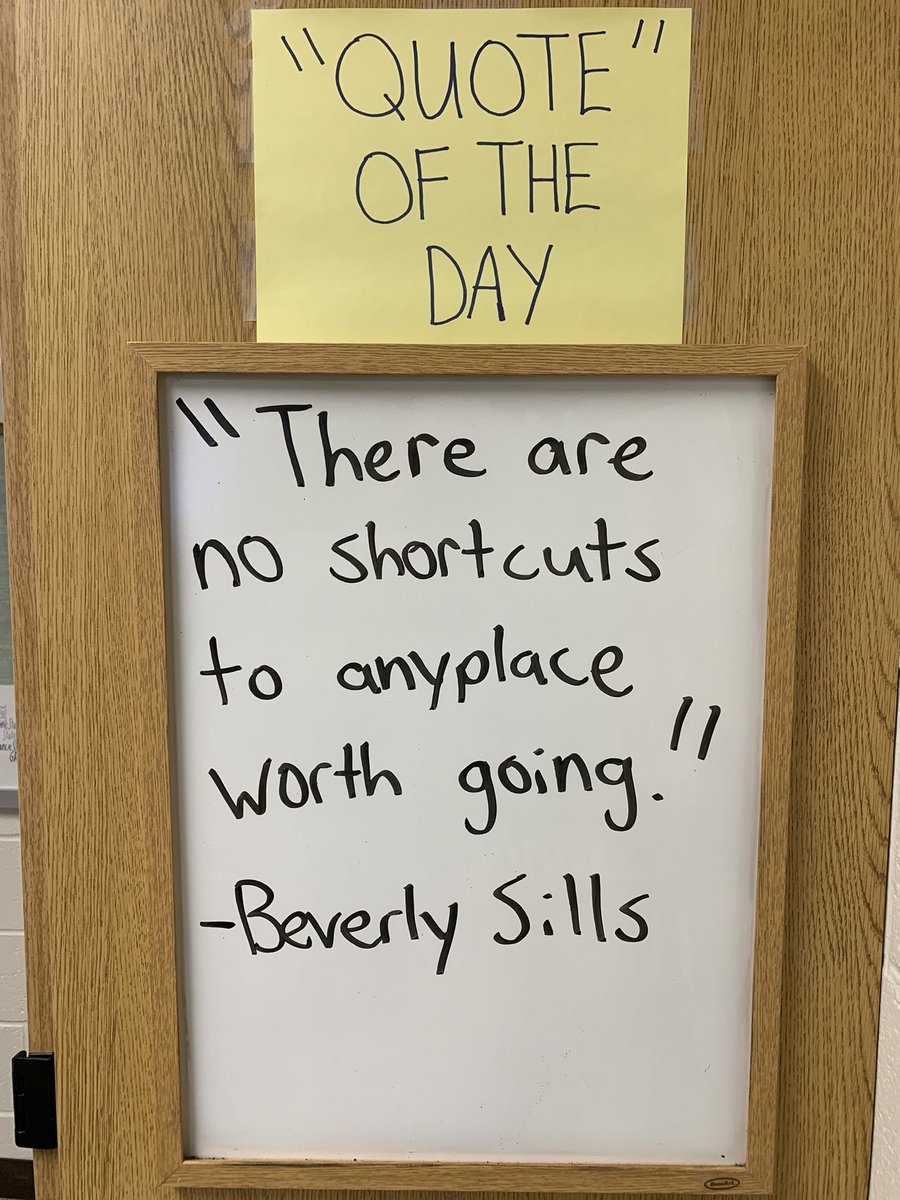 "QUOTE"
OF THE
DAY
"There are
no shortcuts
to anyplace
worth going."
-Beverly Sills